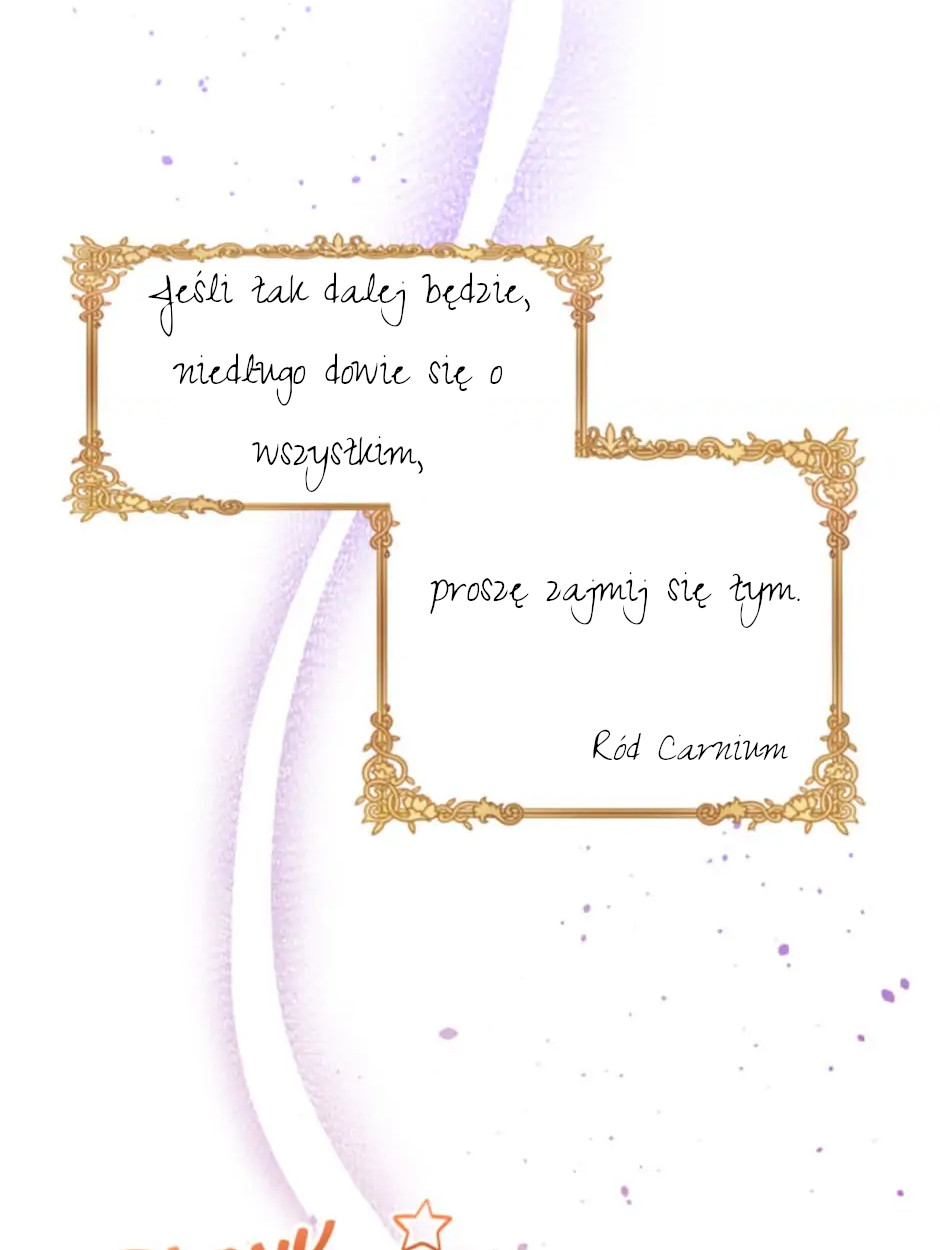 Jeśli tak dalej będzie,
niedługo dowie się o
wszystkim,
proszę zajmij się tym.
Ród Carnium